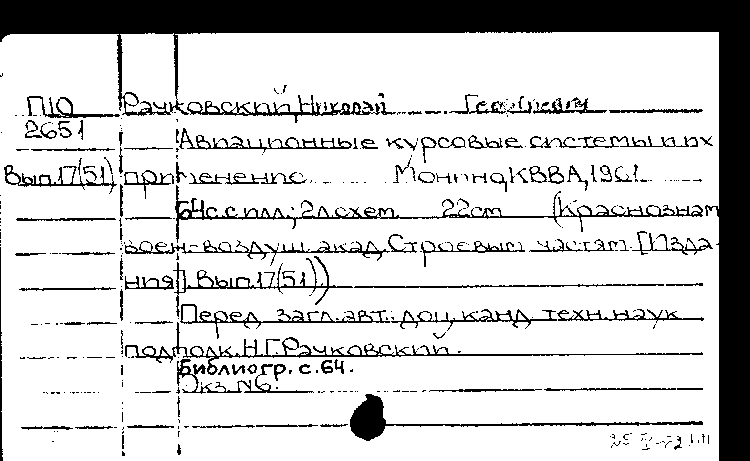 П10 Рачковский, Николай Георгиевич
2651 Авиационные курсовые системы и их
Вып.17(51) применение. Монино, КВВА, 1961.
64с. с илл.; 2л. схем. 22см (Краснознам
воен-воздуш. акад. Строевым частям. [Изда-
ния]. Вып.17(51))
Перед загл. авт.: доц. канд. техн. наук
подполк. Н.Г. Рачковский.
Библиогр. с. 64.
Экз. №6.